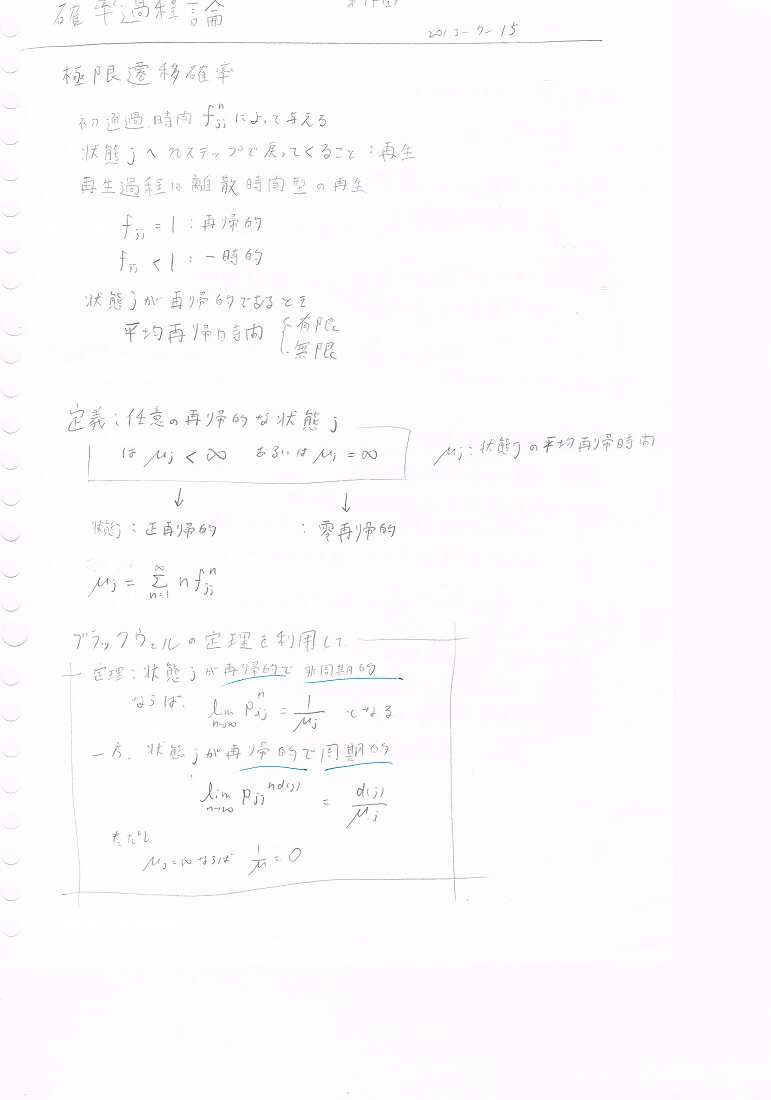 確率過程論
2013-7-15
極限遷移確率
初通過時間 f_{jj}^n によって与える
状態jへnステップで戻ってくること：再生
再生過程は離散時間型の再生
f_{jj} = 1 : 再帰的
f_{jj} < 1 : 一時的
状態jが再帰的であるとき
平均再帰時間 { ・有限
・無限
定義：任意の再帰的な状態j
は μ_j < ∞ あるいは μ_j = ∞
μ_j：状態jの平均再帰時間
↓ ↓
状態j：正再帰的 ：零再帰的
μ_j = Σ_{n=1}^{∞} n f_{jj}^n
ブラックウェルの定理を利用して
定理：状態jが再帰的で非周期的
ならば、 lim_{n→∞} P_{ij}^n = 1/μ_j となる
一方、状態jが再帰的で周期的
lim_{n→∞} P_{jj}^{nd(j)} = d(j)/μ_j
ただし
μ_j=∞ならば 1/μ = 0